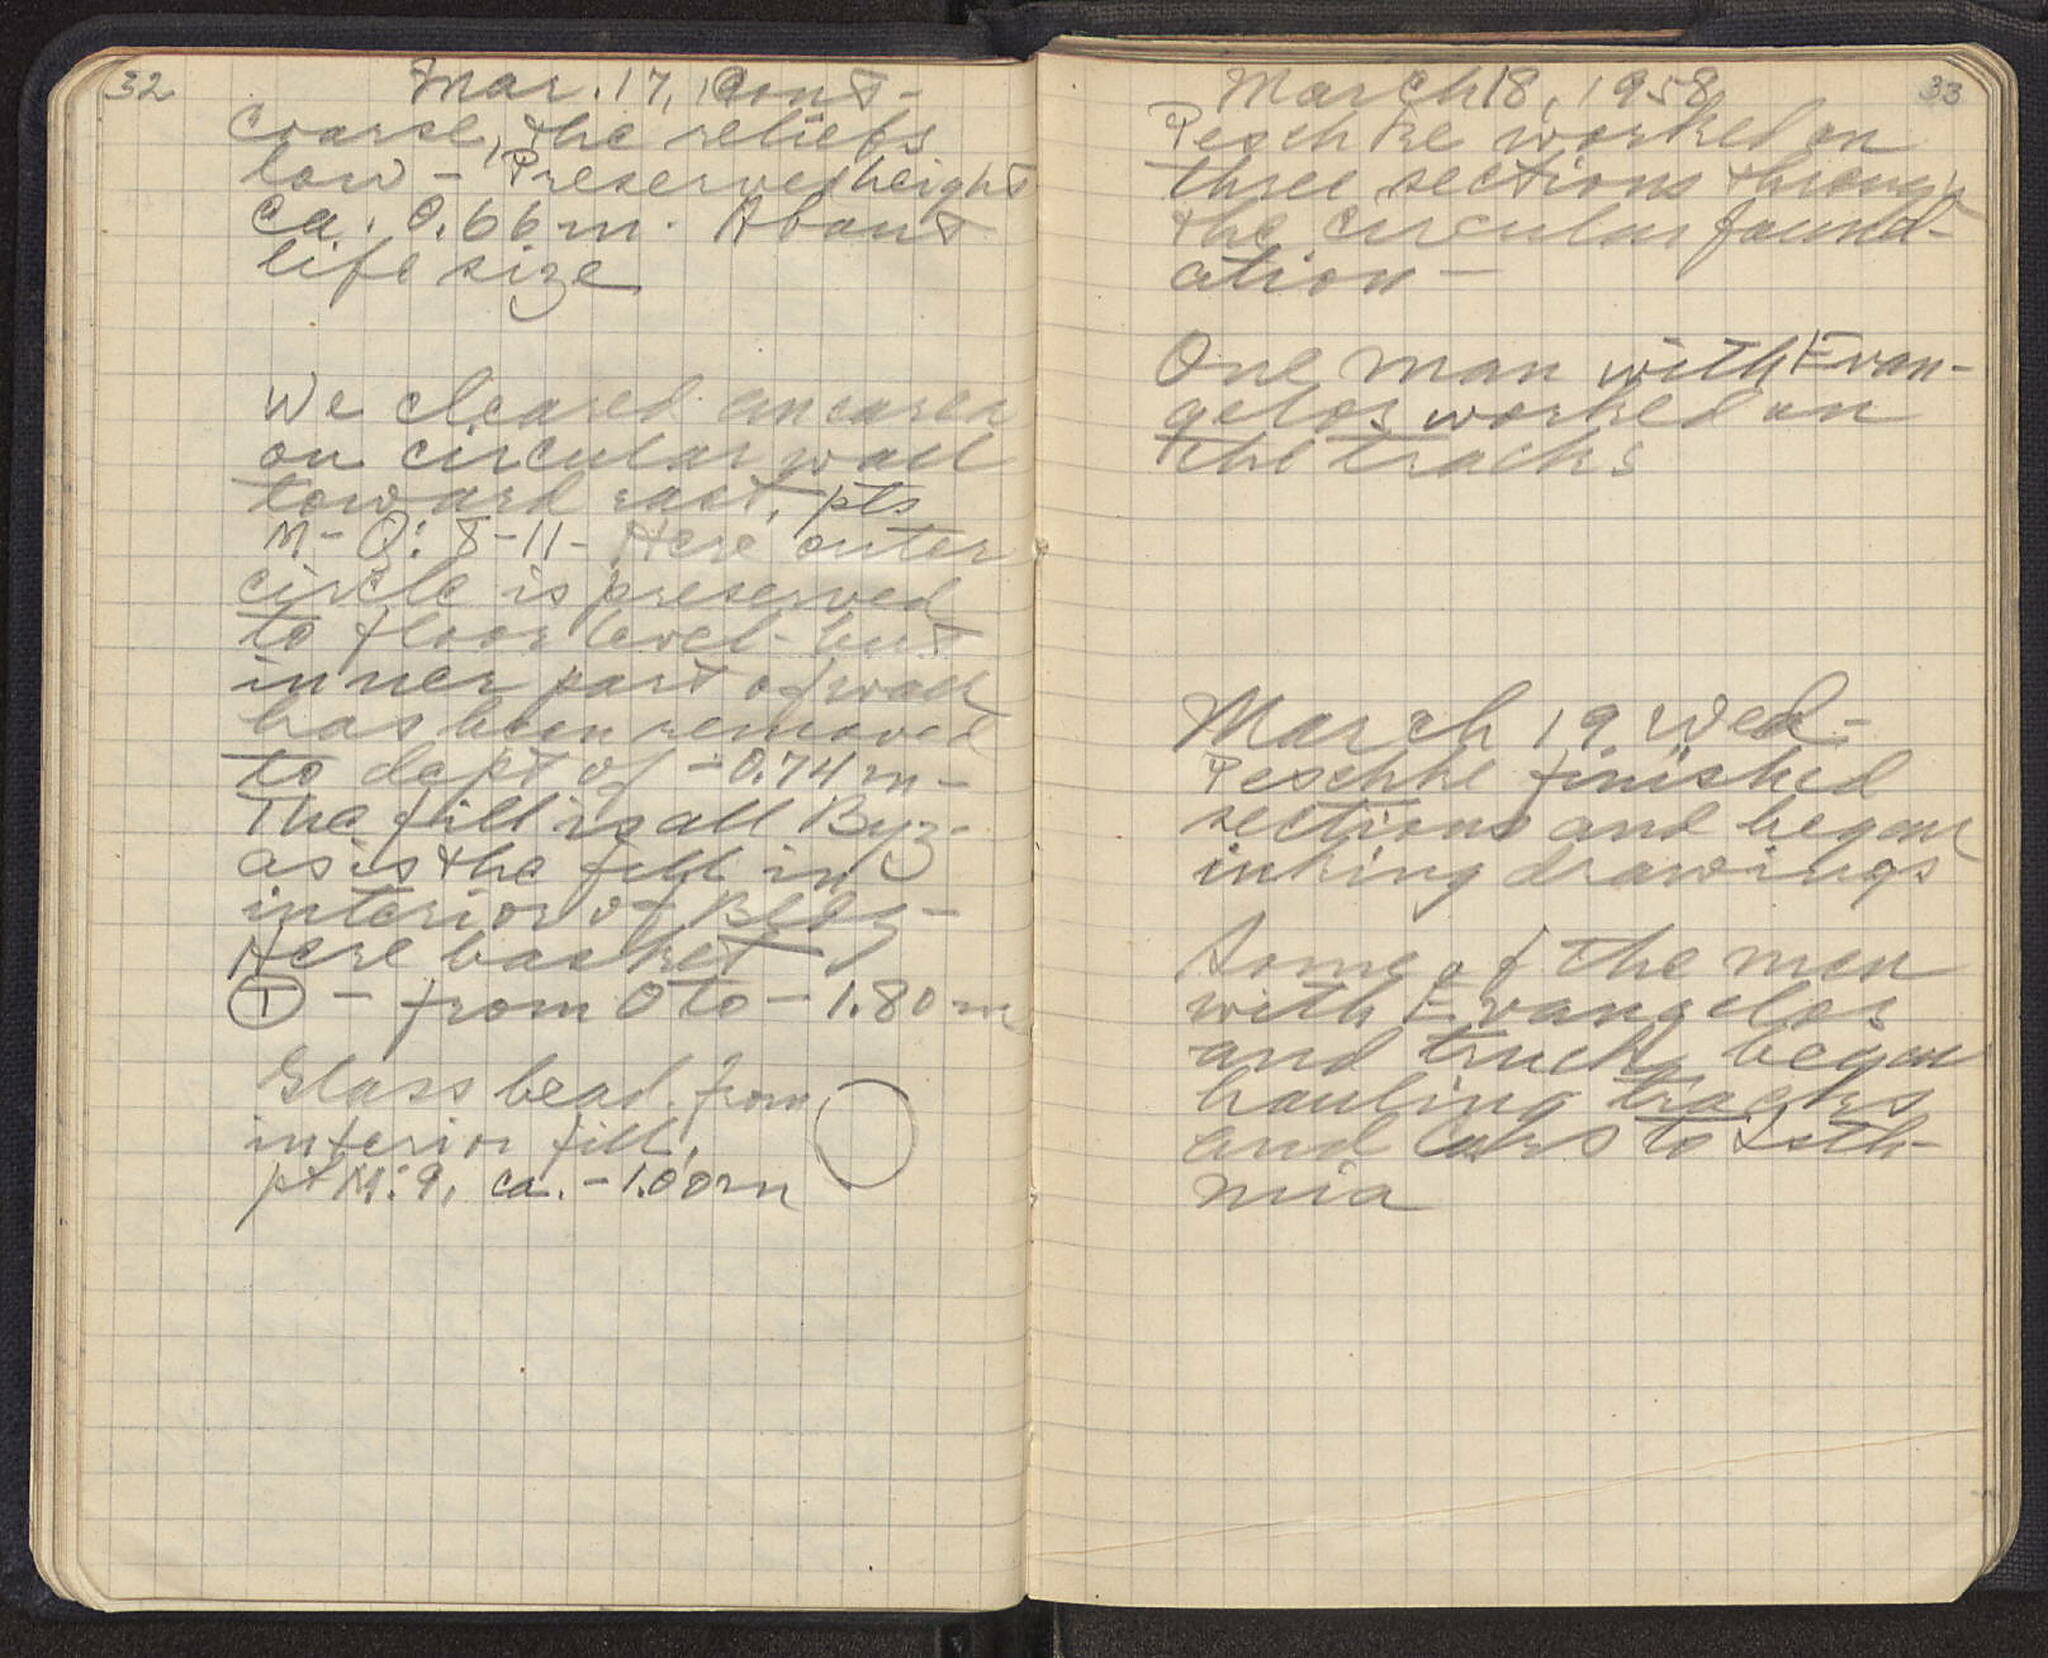 32
Mar. 17, Cont-
coarse, the reliefs
low - Preserved height
ca. 0.66 m. About
life size
We cleared an area
on circular wall
toward east, pts
M - Q: 8-11 - Here outer
circle is preserved
to floor level - but
inner part of wall
has been removed
to dept of -0.74 m -
The fill is all Byz.
as is the fill in
interior of Bldg -
Here basket
① - from 0 to - 1.80 m
Glass bead from
interior fill,
pt M:9, ca. - 1.00m
33
March 18, 1958
Peschke worked on
three sections through
the circular found-
ation -
One man with Evan-
gelos worked on
the tracks
March 19 Wed -
Peschke finished
sections and began
inking drawings
Some of the men
with Evangelos
and truck began
hauling tracks
and cars to Isth-
mia